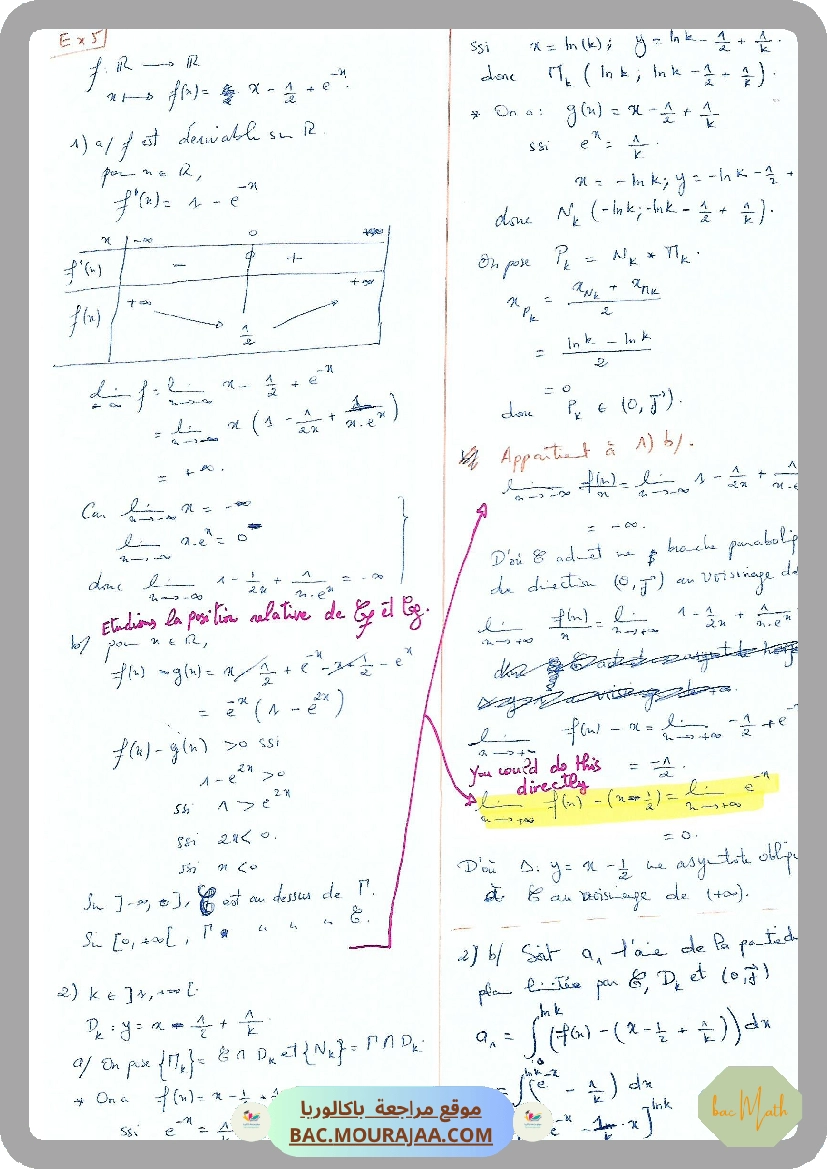 Ex 5
f: ℝ → ℝ
x ↦ f(x) = x - 1/2 + e^-x.
1) a/ f est dérivable sur ℝ.
pour x ∈ ℝ,
f'(x) = 1 - e^-x
x | -∞ 0 +∞
f'(x) - 0 +
f(x) +∞ 1/2 +∞
lim f = lim x - 1/2 + e^-x
= lim x (1 - 1/2x + 1/x.e^x)
= +∞.
Car lim x = -∞
lim x.e^x = 0^-
donc lim 1 - 1/2x + 1/x.e^x = -∞
Etudions la position relative de Cf et Cg.
b/ pour x ∈ ℝ,
f(x) - g(x) = x - 1/2 + e^-x - x + 1/2 - e^x
= e^-x (1 - e^2x)
f(x) - g(x) > 0 ssi
1 - e^2x > 0
ssi 1 > e^2x
ssi 2x < 0.
ssi x < 0
Sur ]-∞, 0], C est au dessus de Γ.
Sur [0, +∞[, Γ " " " C.
2) k ∈ ]1, +∞[.
D_k : y = x - 1/2 + 1/k
a/ On pose {M_k} = C ∩ D_k et {N_k} = Γ ∩ D_k.
* On a f(x) = x - 1/2 +
ssi e^-x = 1/
ssi x = ln(k); y = ln k - 1/2 + 1/k.
donc M_k (ln k; ln k - 1/2 + 1/k).
* On a : g(x) = x - 1/2 + 1/k
ssi e^x = 1/k.
x = -ln k; y = -ln k - 1/2 +
donc N_k (-ln k; -ln k - 1/2 + 1/k).
On pose P_k = N_k * M_k.
x_Pk = (x_Nk + x_Mk)/2
= (ln k - ln k)/2
= 0
donc P_k ∈ (O, j).
Appartient à 1) b/.
lim x→-∞ f(x)/x = lim x→-∞ 1 - 1/2x + 1/x.e
= -∞.
D'où C admet une branche paraboliq
de direction (O, j) au voisinage d
lim x→+∞ f(x)/x = lim x→+∞ 1 - 1/2x + 1/x.e^x
lim x→+∞ f(x) - x = lim x→+∞ -1/2 + e^-
= -1/2.
You could do this
directly
lim x→+∞ f(x) - (x - 1/2) = lim x→+∞ e^-x
= 0.
D'où Δ: y = x - 1/2 une asymtote obliq
à C au voisinage de (+∞).
2) b/ Soit a₁ l'aire de la partie du
plan limitée par C, D_k et (O, j)
a₁ = ∫₀^ln k (f(x) - (x - 1/2 + 1/k)) dx
= ∫^ln k (e^-x - 1/k) dx
e^-x - 1/k x]^ln k
موقع مراجعة باكالوريا
BAC.MOURAJAA.COM
bac Math